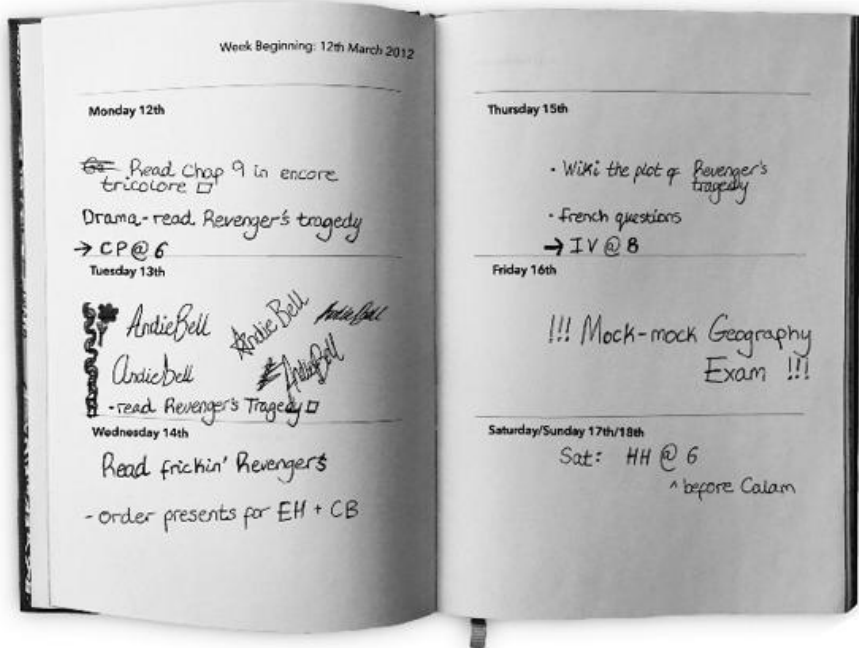 Week Beginning: 12th March 2012
Monday 12th
Read Chap 9 in encore
tricolore
Drama - read Revenger's tragedy
→ CP @ 6
Tuesday 13th
AndieBell
Andie Bell
AndieBell
AndieBell
AndieBell
- read Revenger's Tragedy
Wednesday 14th
Read frickin' Revengers
- order presents for EH + CB
Thursday 15th
• Wiki the plot of Revenger's
tragedy
• french questions
→ IV @ 8
Friday 16th
!!! Mock-mock Geography
Exam !!!
Saturday/Sunday 17th/18th
Sat: HH @ 6
^ before Calam